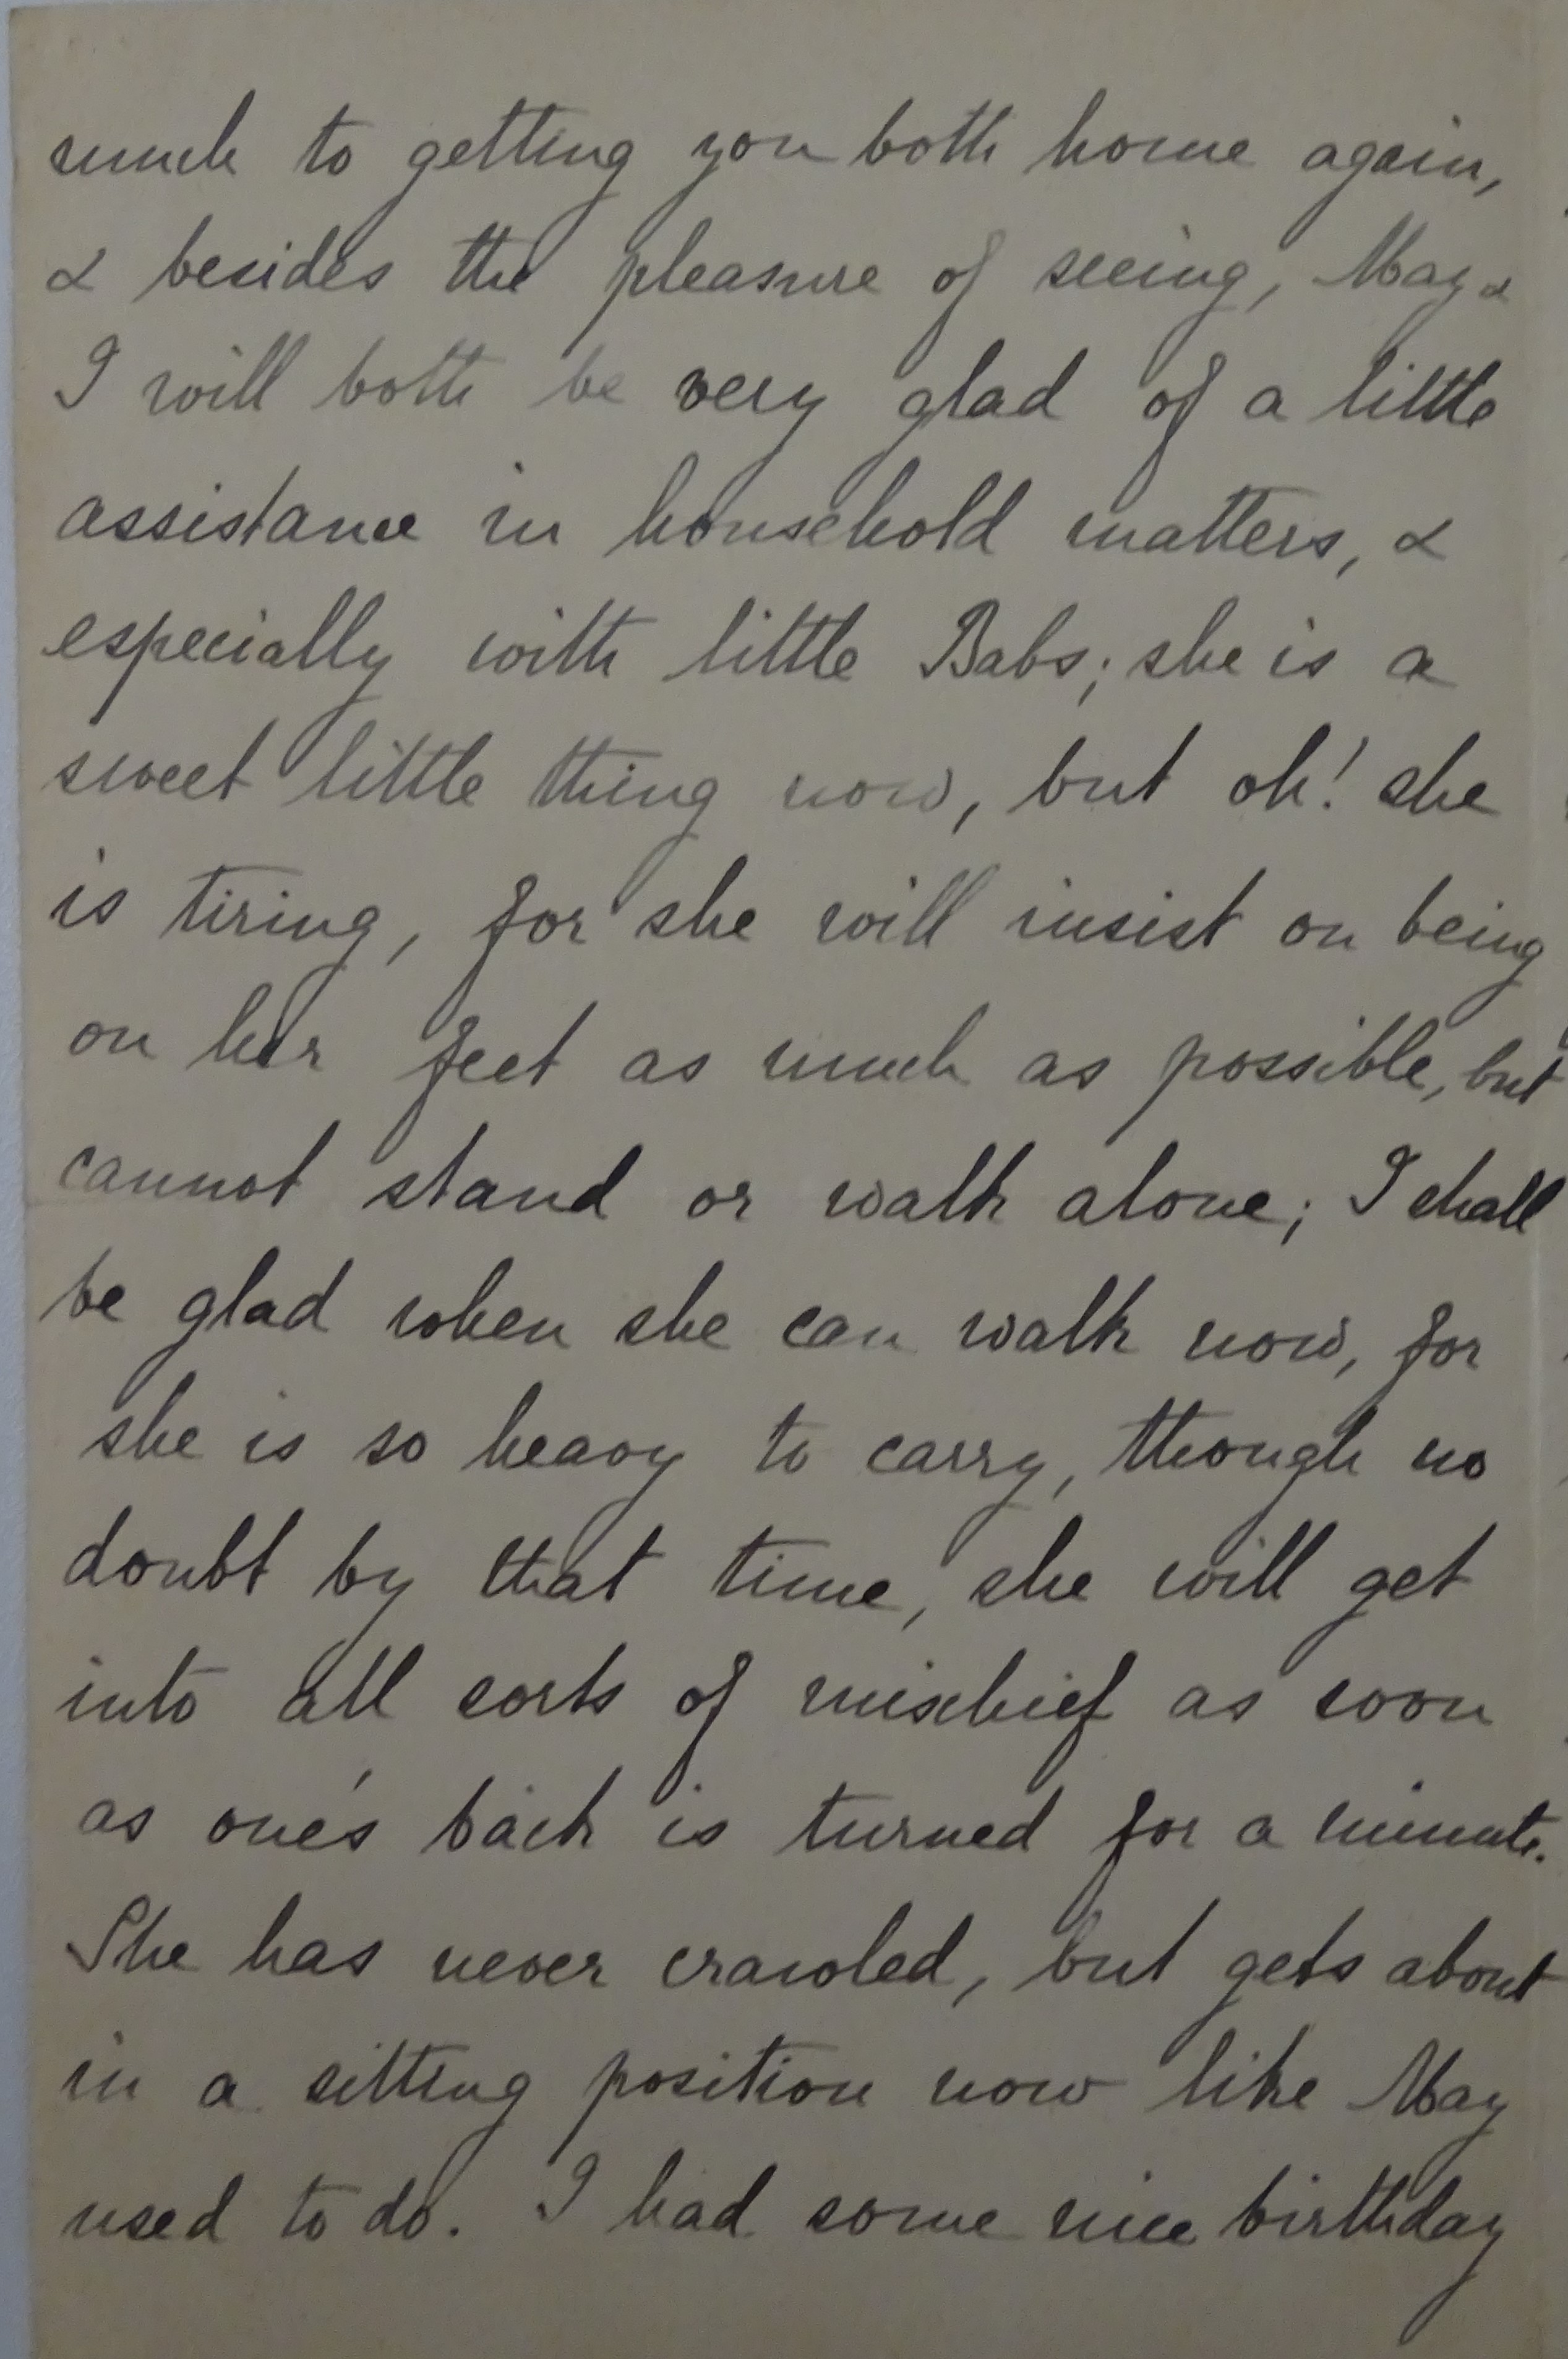 much to getting you both home again,
& besides the pleasure of seeing, May &
I will both be very glad of a little
assistance in household matters, &
especially with little Babs; she is a
sweet little thing now, but oh! she
is tiring, for she will insist on being
on her feet as much as possible, but
cannot stand or walk alone; I shall
be glad when she can walk now, for
she is so heavy to carry, though no
doubt by that time, she will get
into all sorts of mischief as soon
as one's back is turned for a minute.
She has never crawled, but gets about
in a sitting position now like May
used to do. I had some nice birthday